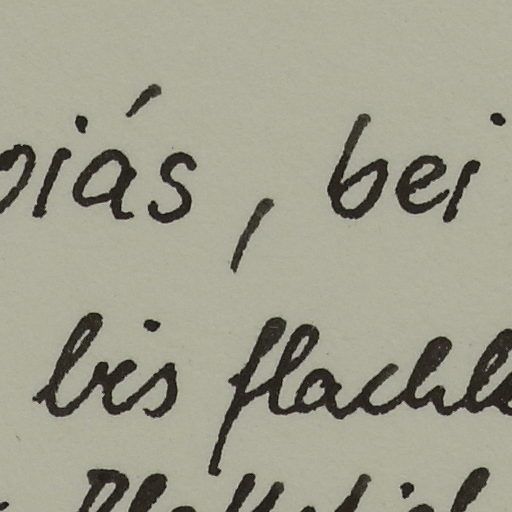 oiás, bei
bis flachk